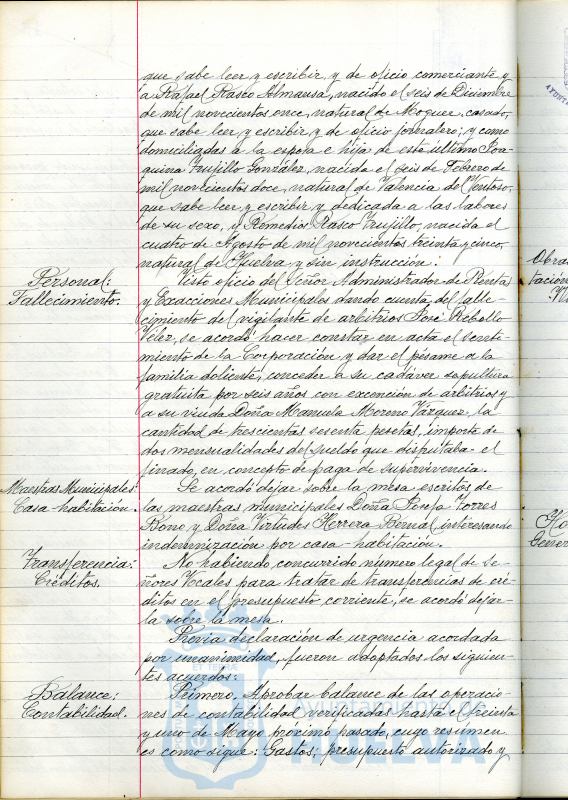 que sabe leer y escribir y de oficio comerciante y
a Rafael Rasco Almansa, nacido el seis de Diciembre
de mil novecientos once, natural de Moguer, casado,
que sabe leer y escribir y de oficio jornalero; y como
domiciliadas a la esposa e hija de este último Joa-
quina Trujillo González, nacida el seis de Febrero de
mil novecientos doce, natural de Valencia del Ventoso,
que sabe leer y escribir y dedicada a las labores
de su sexo, y Remedios Rasco Trujillo, nacida el
cuatro de Agosto de mil novecientos treinta y cinco,
natural de Huelva y sin instrucción.
Personal:
Fallecimiento.
Visto oficio del Señor Administrador de Rentas
y Exacciones Municipales dando cuenta del falle-
cimiento del vigilante de arbitrios José Rebollo
Vélez, se acordó hacer constar en acta el senti-
miento de la Corporación y dar el pésame a la
familia doliente, conceder a su cadáver sepultura
gratuita por seis años con exención de arbitrios y
a su viuda Doña Manuela Moreno Vázquez, la
cantidad de trescientas sesenta pesetas, importe de
dos mensualidades del sueldo que disfrutaba el
finado, en concepto de paga de supervivencia.
Maestras Municipales:
Casa-habitación.
Se acordó dejar sobre la mesa escritos de
las maestras municipales Doña Josefa Torres
y Doña Virtudes Herrera Bernal interesando
indemnización por casa-habitación.
Transferencia:
Créditos.
No habiendo concurrido número legal de Se-
ñores Vocales para tratar de transferencias de cré-
ditos en el presupuesto corriente, se acordó dejar-
la sobre la mesa.
Previa declaración de urgencia acordada
por unanimidad, fueron adoptados los siguien-
tes acuerdos:
Balance:
Contabilidad.
Primero. Aprobar balance de las operacio-
nes de contabilidad verificadas hasta el treinta
y uno de Mayo próximo pasado, cuyo resumen
es como sigue: Gastos; presupuesto autorizado y
Ayuntamiento de
HUELVA